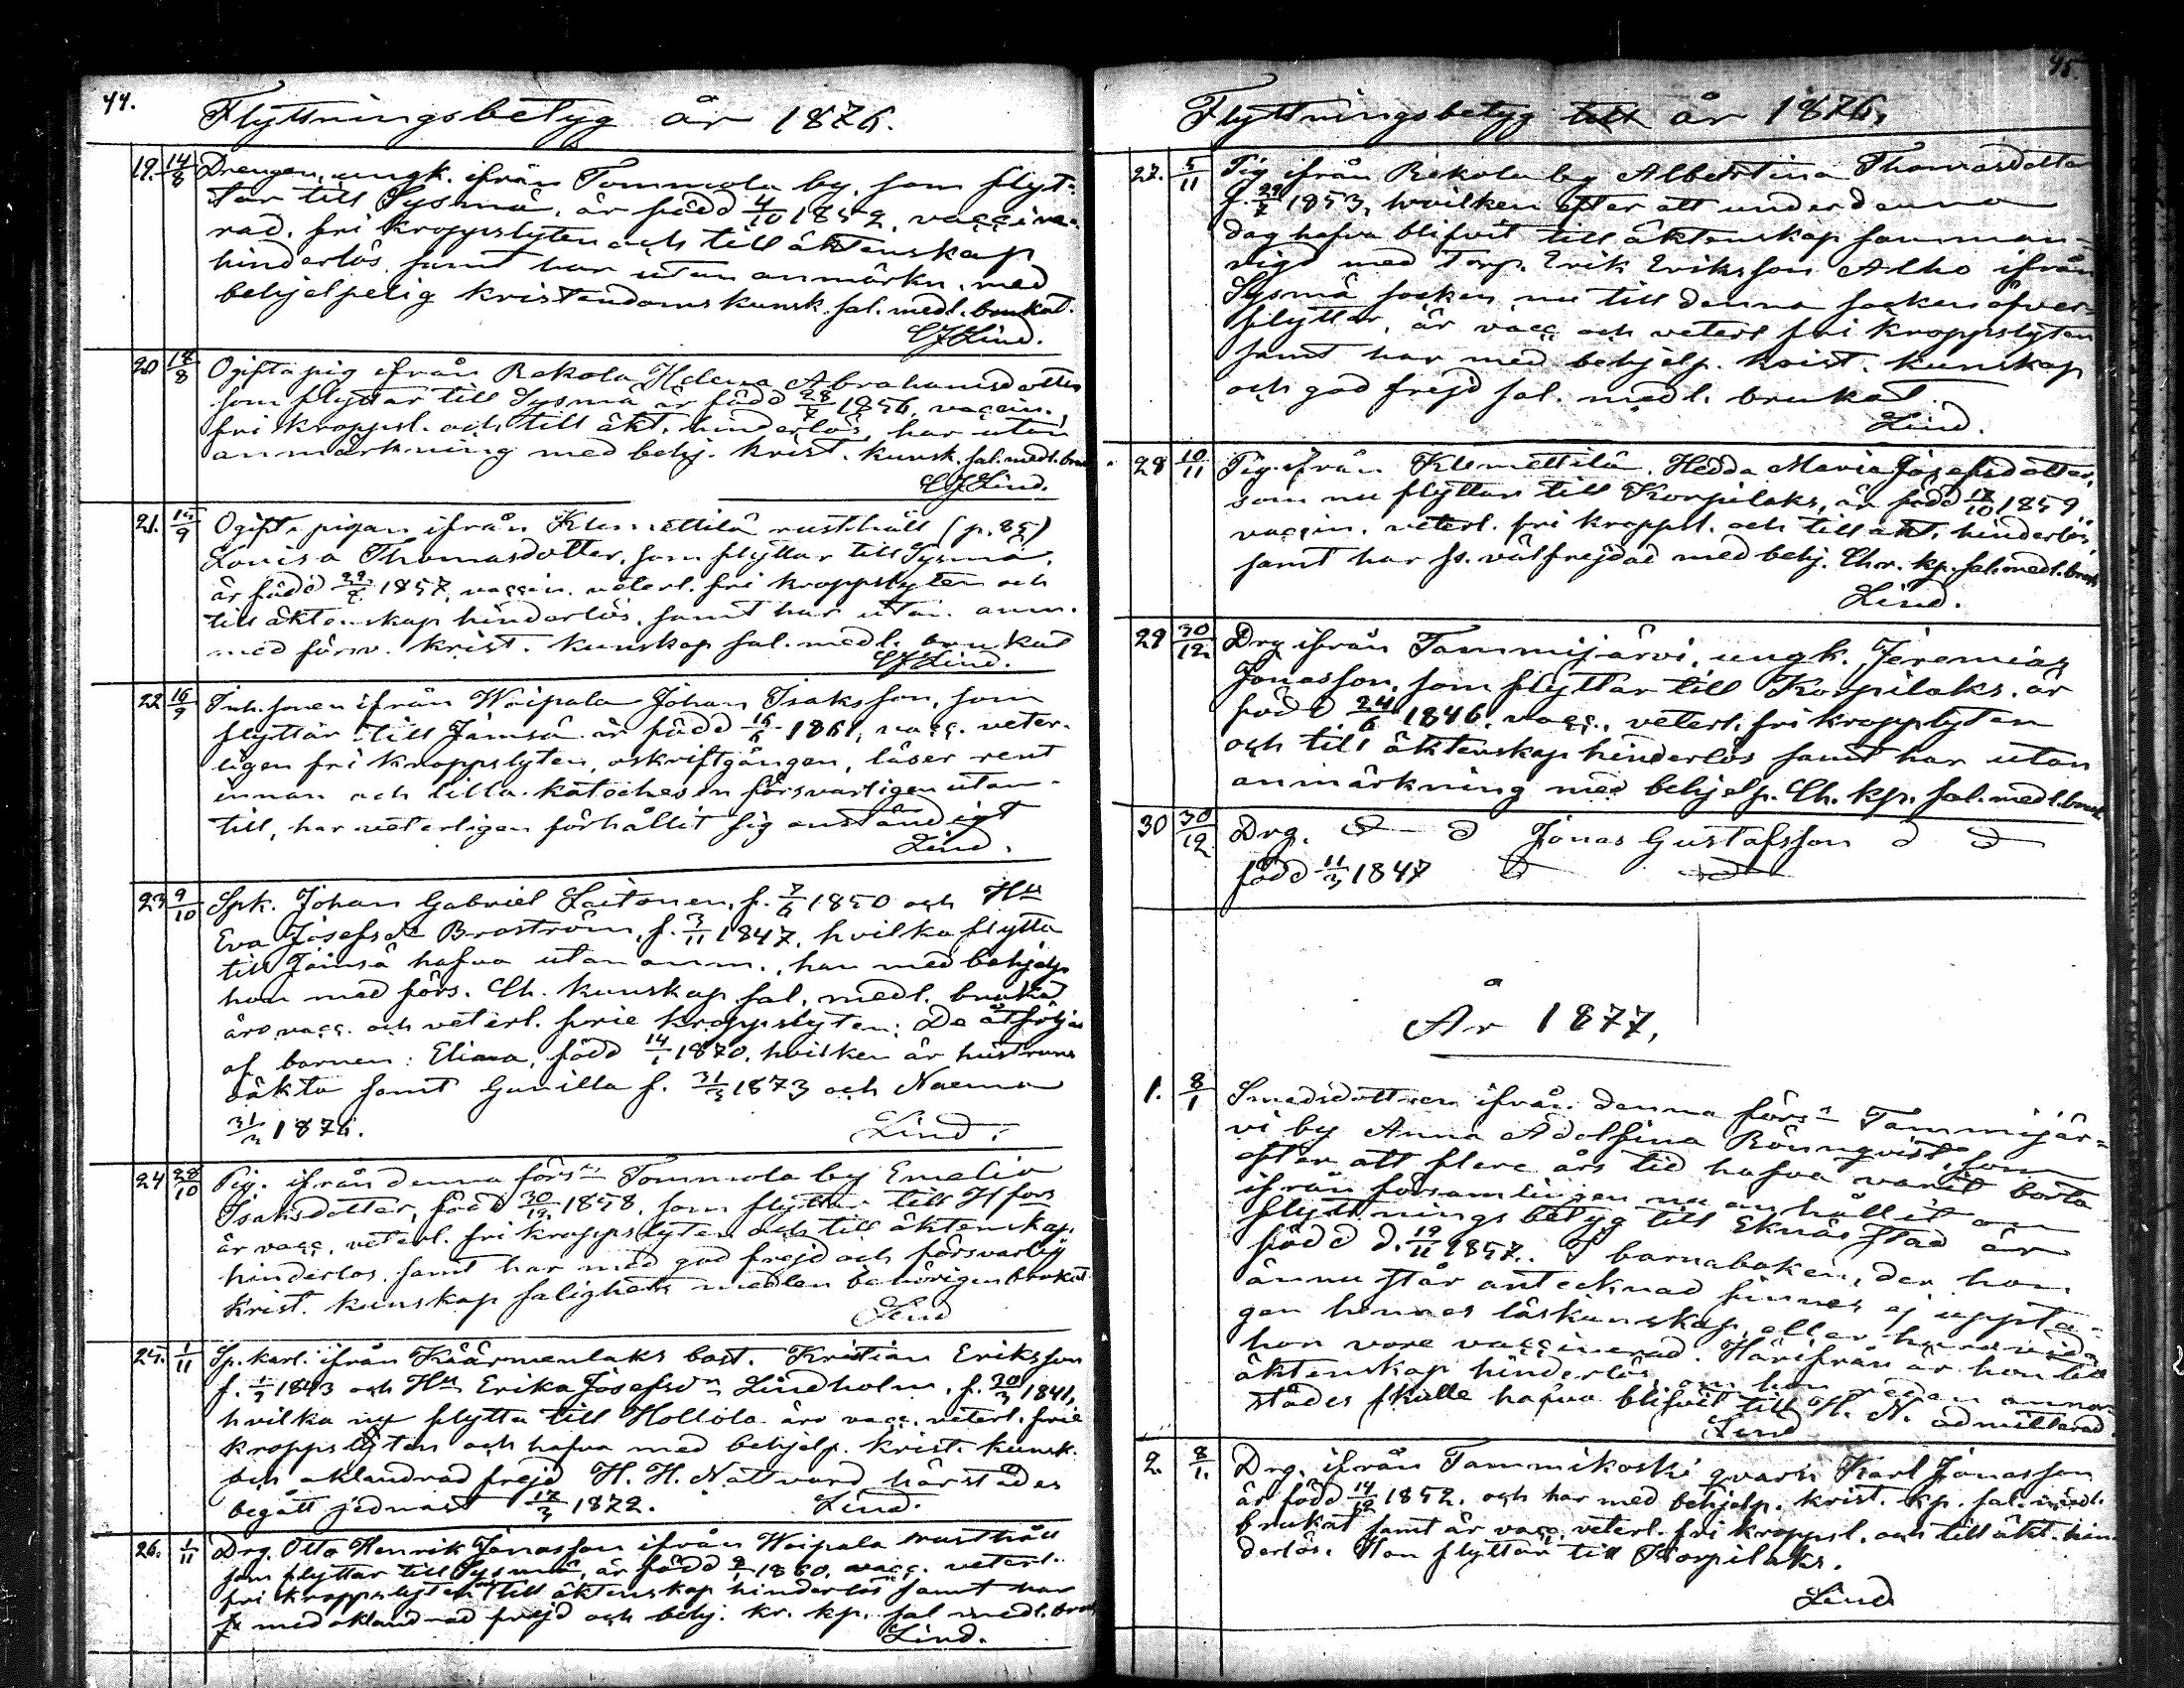 44.
Flyttningsbetyg år 1876.
19. 14/8 Drengen, ungk. ifrån Tommola by, som flyt-
tar till Sysmä, är född 4/10 1852, vaccine-
rad, fri kroppslyten och till äktenskap
hinderlös, samt har utan anmärkn. med
behjelpelig kristendoms kunsk. sal. medl. brukat.
CJLind.
20 18/8 Ogifta pig ifrån Rekola Helena Abrahamsdotter
som flyttar till Sysmä är född 28/7 1856, vaccin.,
fri kroppsl. och till äkt. hinderlös, har utan
anmärkning med behj. krist. kunsk. sal. medl. bruk
CJLind.
21. 14/9 Ogifta pigan ifrån Klemettilä rusthåll (p. 85)
Lovisa Thomasdotter, som flyttar till Sysmä,
är född 1857, vaccin. veterl. fri kroppslyten och
till äktenskap hinderlös, samt har utan anm.
med försv. krist. kunskap sal. medl. brukat
CJLind.
22 16/9 Inh. sonen ifrån Woipala Johan Isaksson, som
flyttar till Jämsä är född 1861, vacc. veter-
ligen fri kroppslyten, oskriftgången, läser rent
innan och lilla katechesen försvarligen utan-
till, har veterligen förhållit sig anständigt
Lind.
23 9/10 Spk. Johan Gabriel Laitonen, f. 7/6 1850 och Hu
Eva Josefsdr Broström, f. 3/11 1847, hvilka flytta
till Jämsä hafva utan anm., han med behjelp.
hon med förs. Ch. kunskap sal. medl. brukat,
äro vacc. och veterl. frie kroppslyten; De åtföljas
af barnen: Elina, född 14/1 1870, hvilken är hustruns
oäkta samt Gunilla f. 31/3 1873 och Naema
31/3 1876.
Lind.
24 28/10 Pig. ifrån denna förs:ns Tommola by Emelia
Isaksdotter, född 30/12 1858, som flyttar till Hfors
är vacc. veterl. fri kroppslyten och till äktenskap
hinderlös, samt har med god frejd och försvarlig
Krist. kunskap salighets medlen behörigen brukat.
Lind
25. 1/11 Sp. karl. ifrån Käärmenlaks bost. Kristian Eriksson
f. 1843 och Hu Erika Josefsdr Lindholm, f. 20/3 1841,
hvilka nu flytta till Hollola äro vacc. veterl. frie
kroppslyten och hafva med behjelp. krist. kunsk.
och oklandrad frejd H. H. Nattvard härstädes
begått sednast 17/3 1872. Lind.
26. 1/11 Drg. Otto Henrik Jonasson ifrån Woipala rusthåll
som flyttar till Sysmä, är född 1860, vacc. veterl.
fri kroppslyten och till äktenskap hinderlös samt har
med oklandrad frejd och behj. kr. kp. sal medl. bruk
Lind.
45.
Flyttningsbetyg till år 1876,
27. 5/11 Pig ifrån Rekola by Albertina Thomasdotter
f. 29/7 1853, hvilken efter att under denna
dag hafva blifvit till äktenskap samman-
vigd med torp. Erik Eriksson Alho ifrån
Sysmä socken nu till denna socken öfver-
flyttar, är vacc och veterl fri kroppslyten
samt har med behjelp. krist. kunskap
och god frejd sal. medl. brukat.
Lind.
28 10/11 Pig. ifrån Klemettilä, Hedda Maria Josefsdotter,
som nu flyttar till Korpilaks, är född 17/10 1859
vaccin. veterl. fri kroppsl. och till äkt. hinderlös,
samt har ss. välfrejdad med behj. Chr. kp. sal. medl. bruk
Lind.
29 30/12 Drg ifrån Tammijärvi, ungk. Jeremias
Jonasson, som flyttar till Korpilaks, är
född 24/6 1846, vacc., veterl. fri kroppslyten
och till äktenskap hinderlös samt har utan
anmärkning med behjelp. Ch. kp. sal. medl. bruk
30 30/12 Drg. d d Jonas Gustafsson d d
född 11/3 1847 d d
År 1877,
1. 8/1 Smedsdottren ifrån denna förs:s Tammijär-
vi by Anna Adolfina Rönnqvist, som
efter att flere års tid hafva varit borta
ifrån församlingen nu anhållit om
flyttningsbetyg till Eknäs stad är
född d. 19/11 1857. I barnaboken, der hon
ännu står antecknad finnes ej uppta-
gen hennes läskunskap, eller huruvida
hon vore vaccinerad. Härifrån är hon till
äktenskap hinderlös, om hon redan annor-
städes skulle hafva blifvit till H. N. admitterad.
Lind
2. 8/1. Drg. ifrån Tammikoski qvarn Karl Jonasson
är född 14/12 1852, och har med behjelp. krist. kp. sal. medl.
brukat samt är vacc. veterl. fri kroppsl. och till äkt. hin-
derlös. Han flyttar till Korpilaks.
Lind